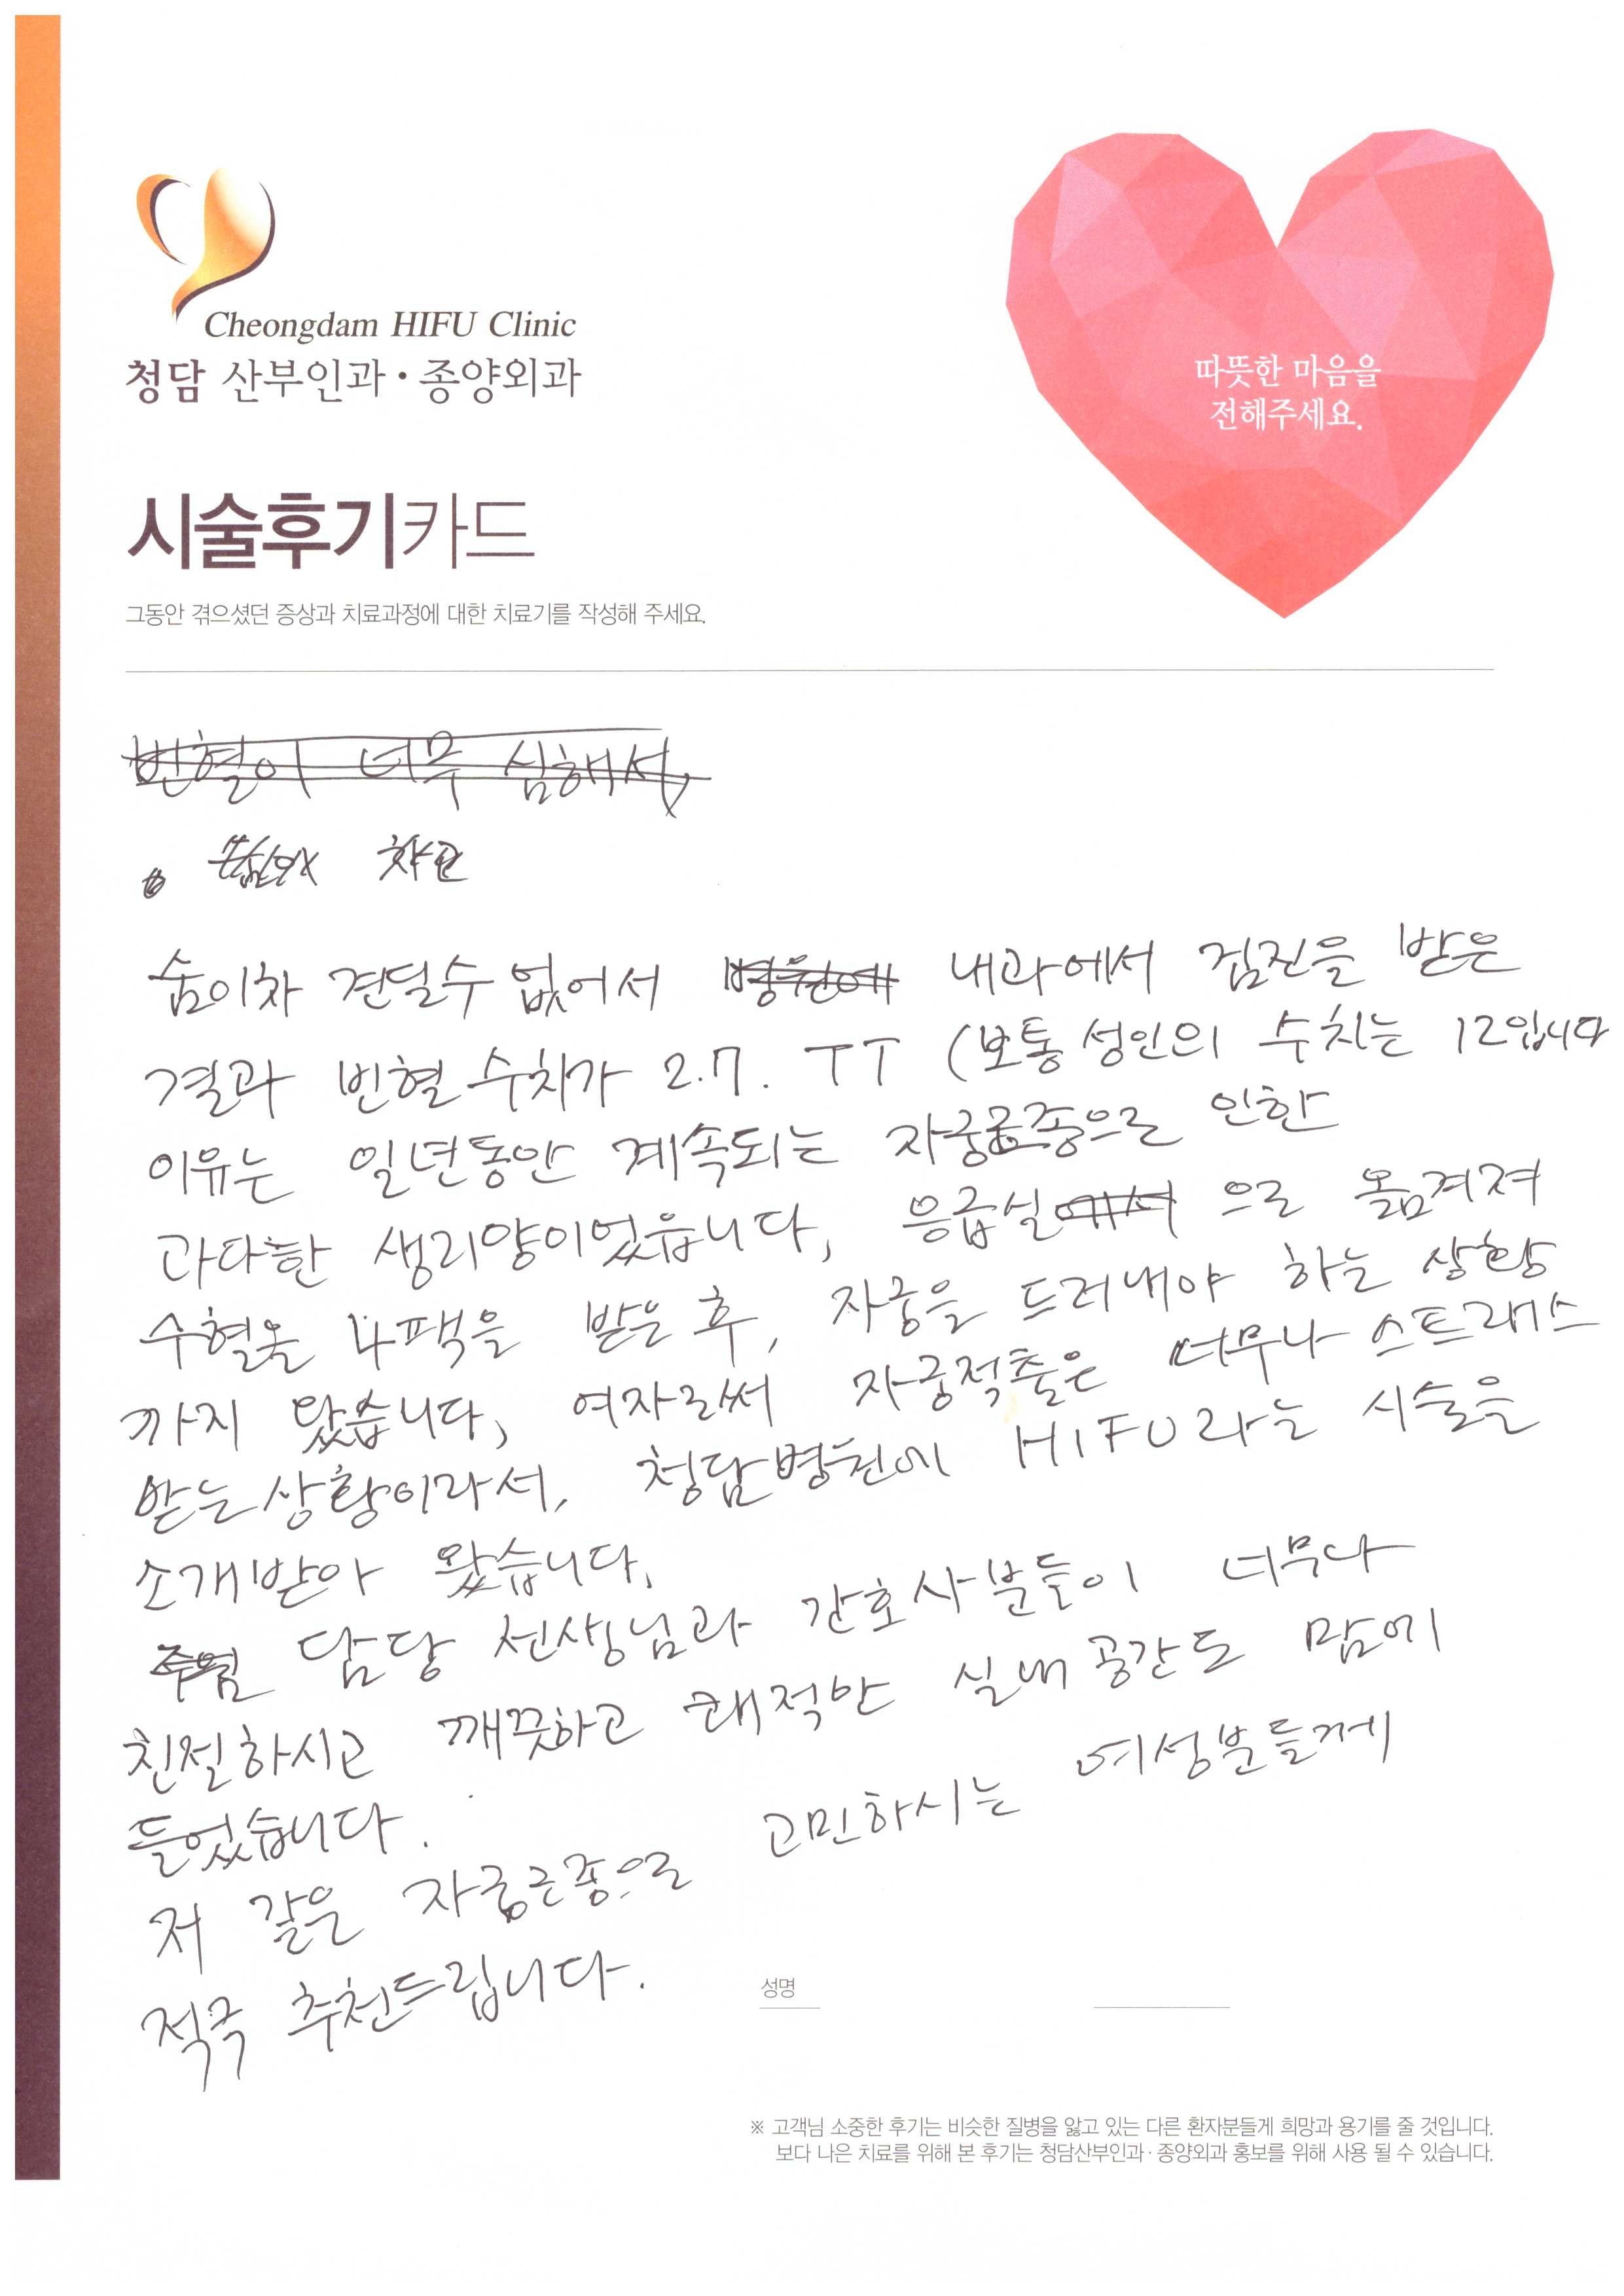 Cheongdam HIFU Clinic
청담 산부인과·종양외과
따뜻한 마음을
전해주세요.
시술후기카드
그동안 겪으셨던 증상과 치료과정에 대한 치료기를 작성해 주세요.
빈혈이 너무 심해서,
숨이차 견딜수 없어서 병원에 내과에서 검진을 받은
결과 빈혈 수치가 2.7. TT (보통 성인의 수치는 12입니다
이유는 일년동안 계속되는 자궁근종으로 인한
과다한 생리양이었읍니다, 응급실에서 으로 옮겨져
수혈을 4팩을 받은 후, 자궁을 드러내야 하는 상황
까지 왔습니다, 여자로써 자궁적출은 너무나 스트레스
받는 상황이라서, 청담병원에 HIFU라는 시술을
소개받아 왔습니다,
담당 선생님과 간호사분들이 너무나
친절하시고 깨끗하고 쾌적한 실내 공간도 맘에
들었습니다.
저 같은 자궁근종으로 고민하시는 여성분들께
적극 추천드립니다.
성명
※ 고객님 소중한 후기는 비슷한 질병을 앓고 있는 다른 환자분들게 희망과 용기를 줄 것입니다.
보다 나은 치료를 위해 본 후기는 청담산부인과·종양외과 홍보를 위해 사용 될 수 있습니다.